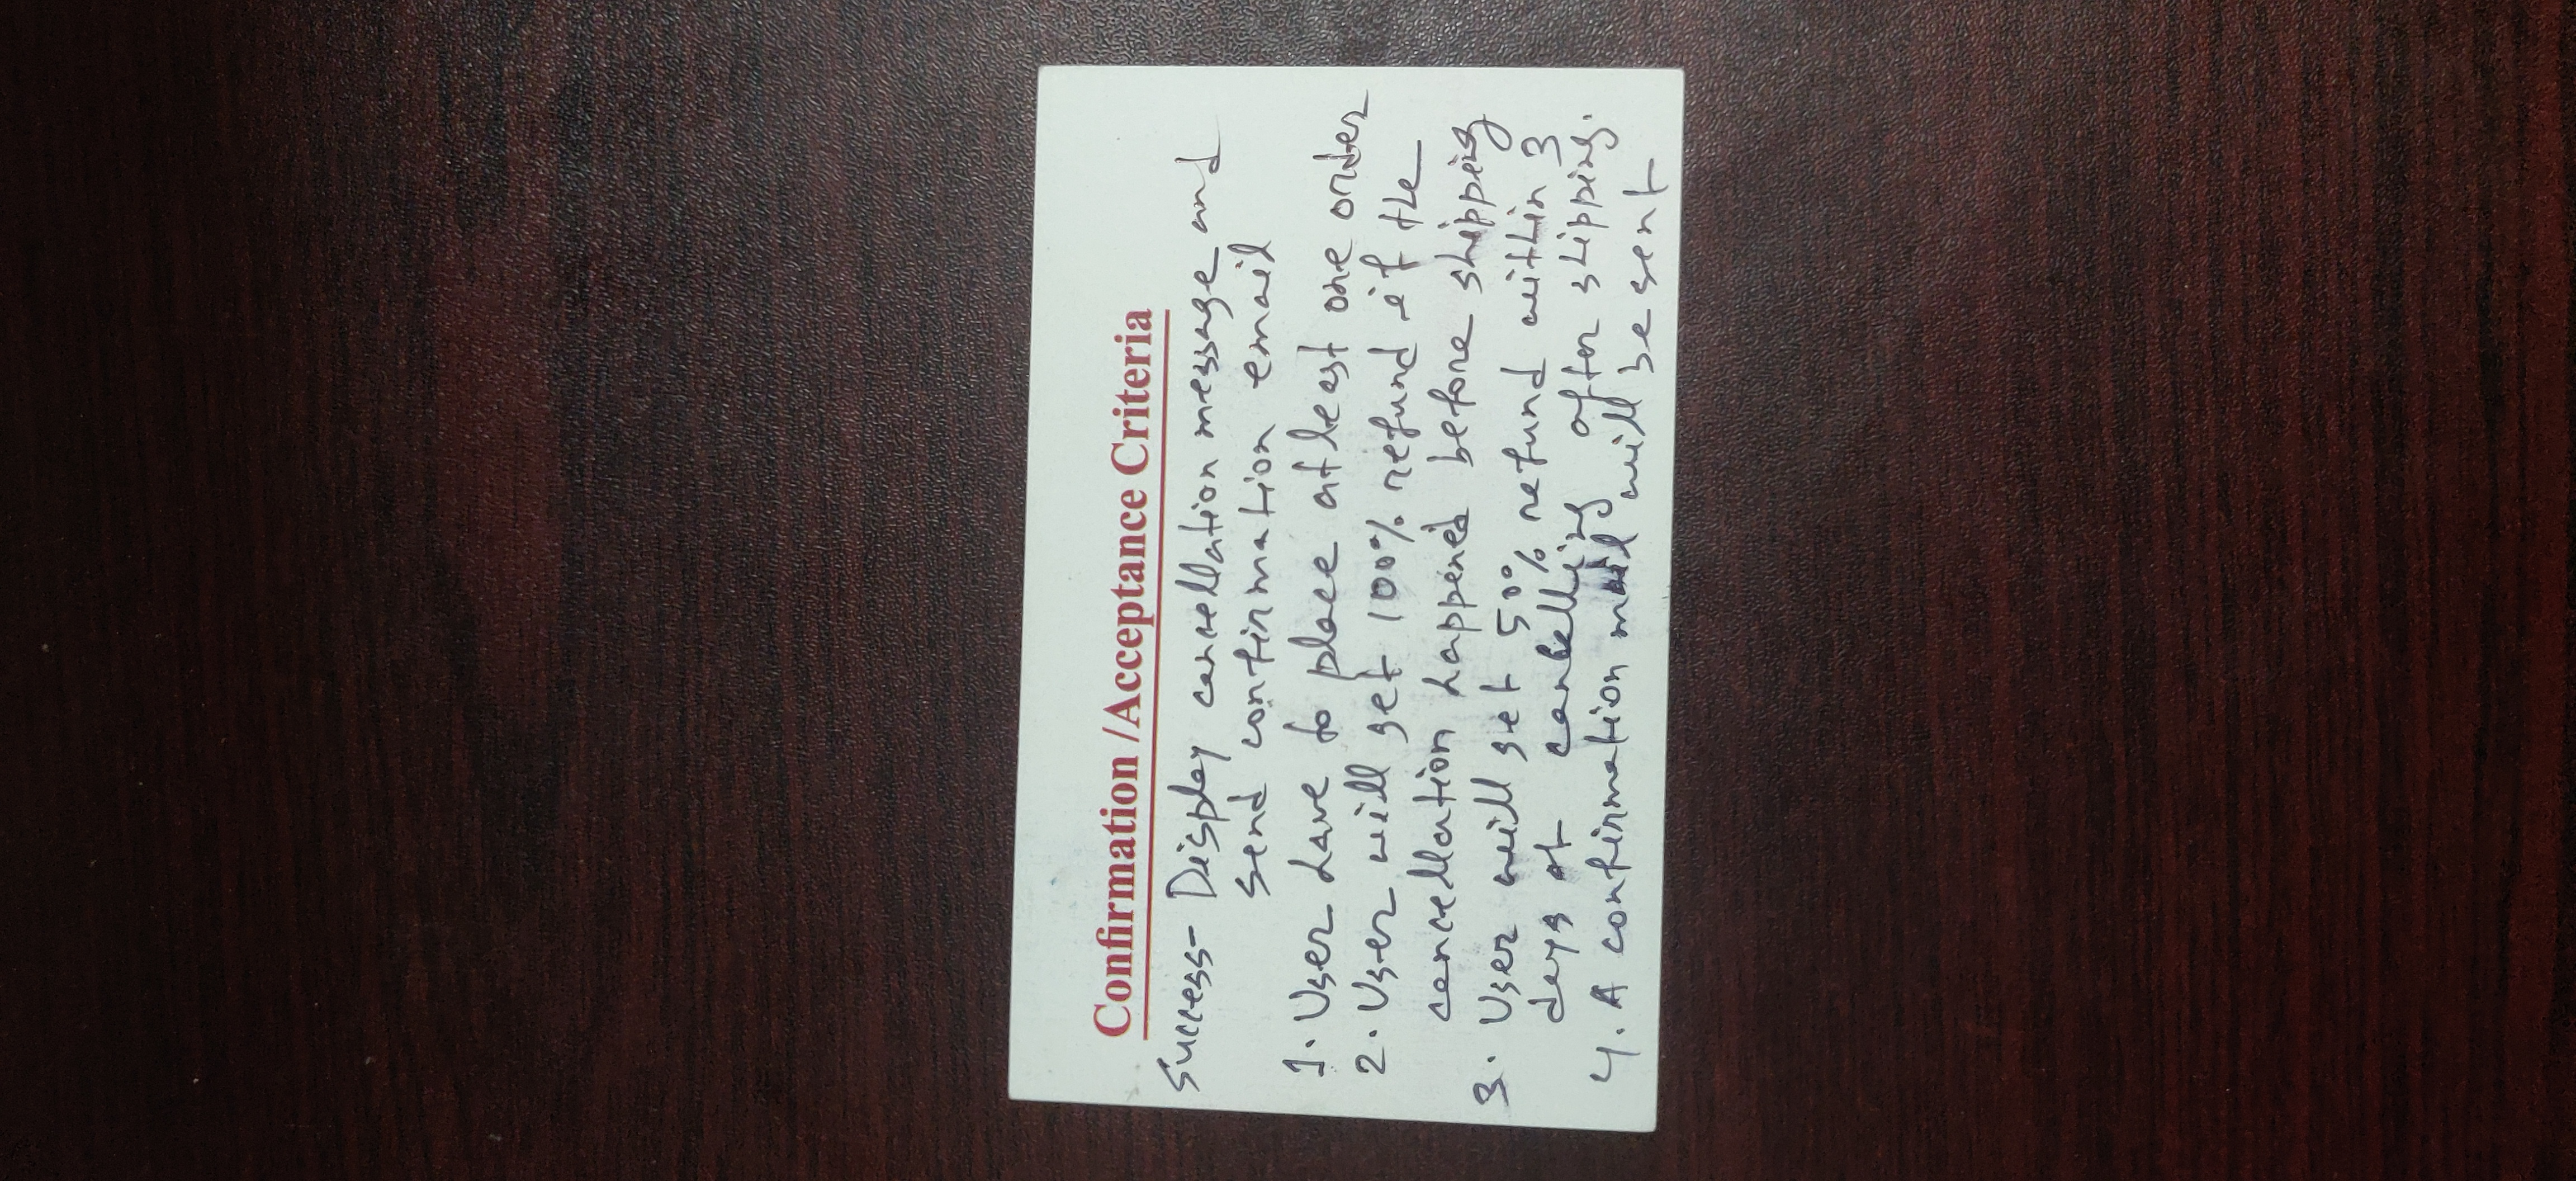 Confirmation /Acceptance Criteria
Success- Display cancellation message and
send confirmation email
1. User have to place atleast one order
2. User will get 100% refund if the
cancellation happened before shipping
3. User will get 50% refund within 3
days of cancelling after shipping.
4. A confirmation mail will be sent